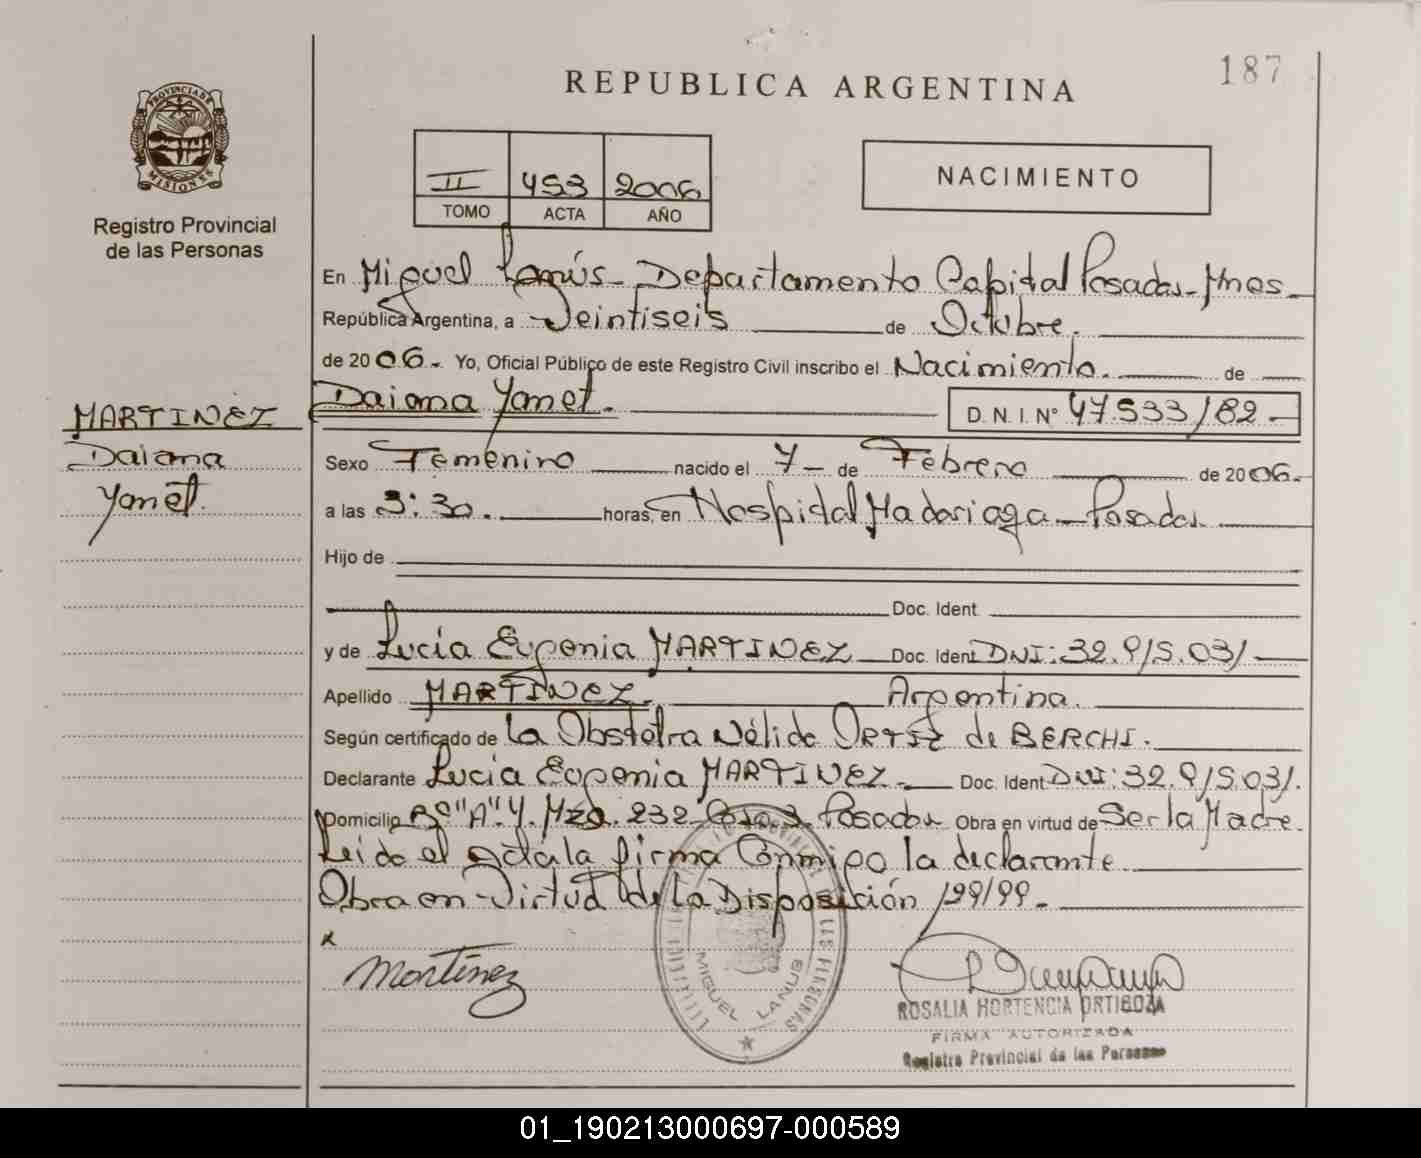 187
REPUBLICA ARGENTINA
PROVINCIA DE MISIONES
Registro Provincial
de las Personas
II 453 2006
TOMO ACTA AÑO
NACIMIENTO
En Miguel Lanús - Departamento Capital Posadas - Mnes -
República Argentina, a Veintiseis de Octubre.
de 2006. Yo, Oficial Público de este Registro Civil inscribo el Nacimiento. de
MARTINEZ
Daiana
Yanet.
Daiana Yanet. D. N. I. N° 47.533/82 -
Sexo Femenino nacido el 7 - de Febrero de 2006.
a las 3:30. horas, en Hospital Madariaga - Posadas
Hijo de
Doc. Ident.
y de Lucía Eugenia MARTINEZ Doc. Ident DNI: 32.915.031
Apellido MARTINEZ. Argentina.
Según certificado de La Obstétra Nélida ORTIZ de BERCHI.
Declarante Lucía Eugenia MARTINEZ. Doc. Ident DNI: 32.915.031.
Domicilio Bº "A".4. Mza. 232 Posadas Obra en virtud de Ser la Madre.
Leido el acta la firma Conmigo la declarante
Obra en Virtud de La Disposición 199/99.
x
Martinez
MIGUEL LANUS
ROSALIA HORTENCIA ORTIGOZA
FIRMA AUTORIZADA
Registro Provincial de las Personas
01_190213000697-000589